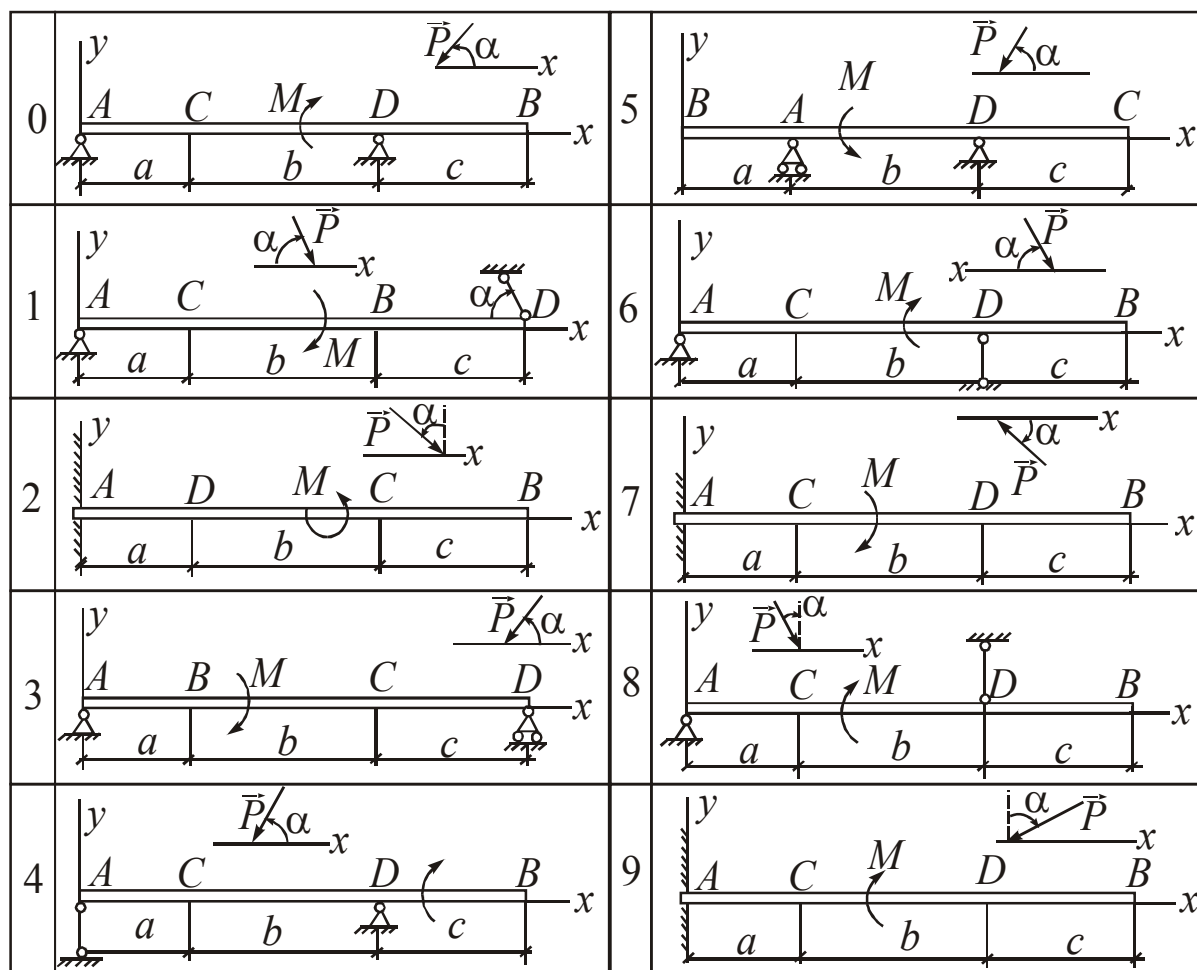 0
y
P α x
A C M D B
x
a b c
5
P α
M
B A D C
x
a b c
1
y
α P x
A C B α D
x
M
a b c
6
α P
x
A C M D B
x
a b c
2
y
P α x
A D M C B
x
a b c
7
y
x
α
P
A C M D B
x
a b c
3
y
P α x
A B M C D
x
a b c
8
y
P α x
A C M D B
x
a b c
4
y
P α x
A C D B
x
a b c
9
y
α P x
A C M D B
x
a b c